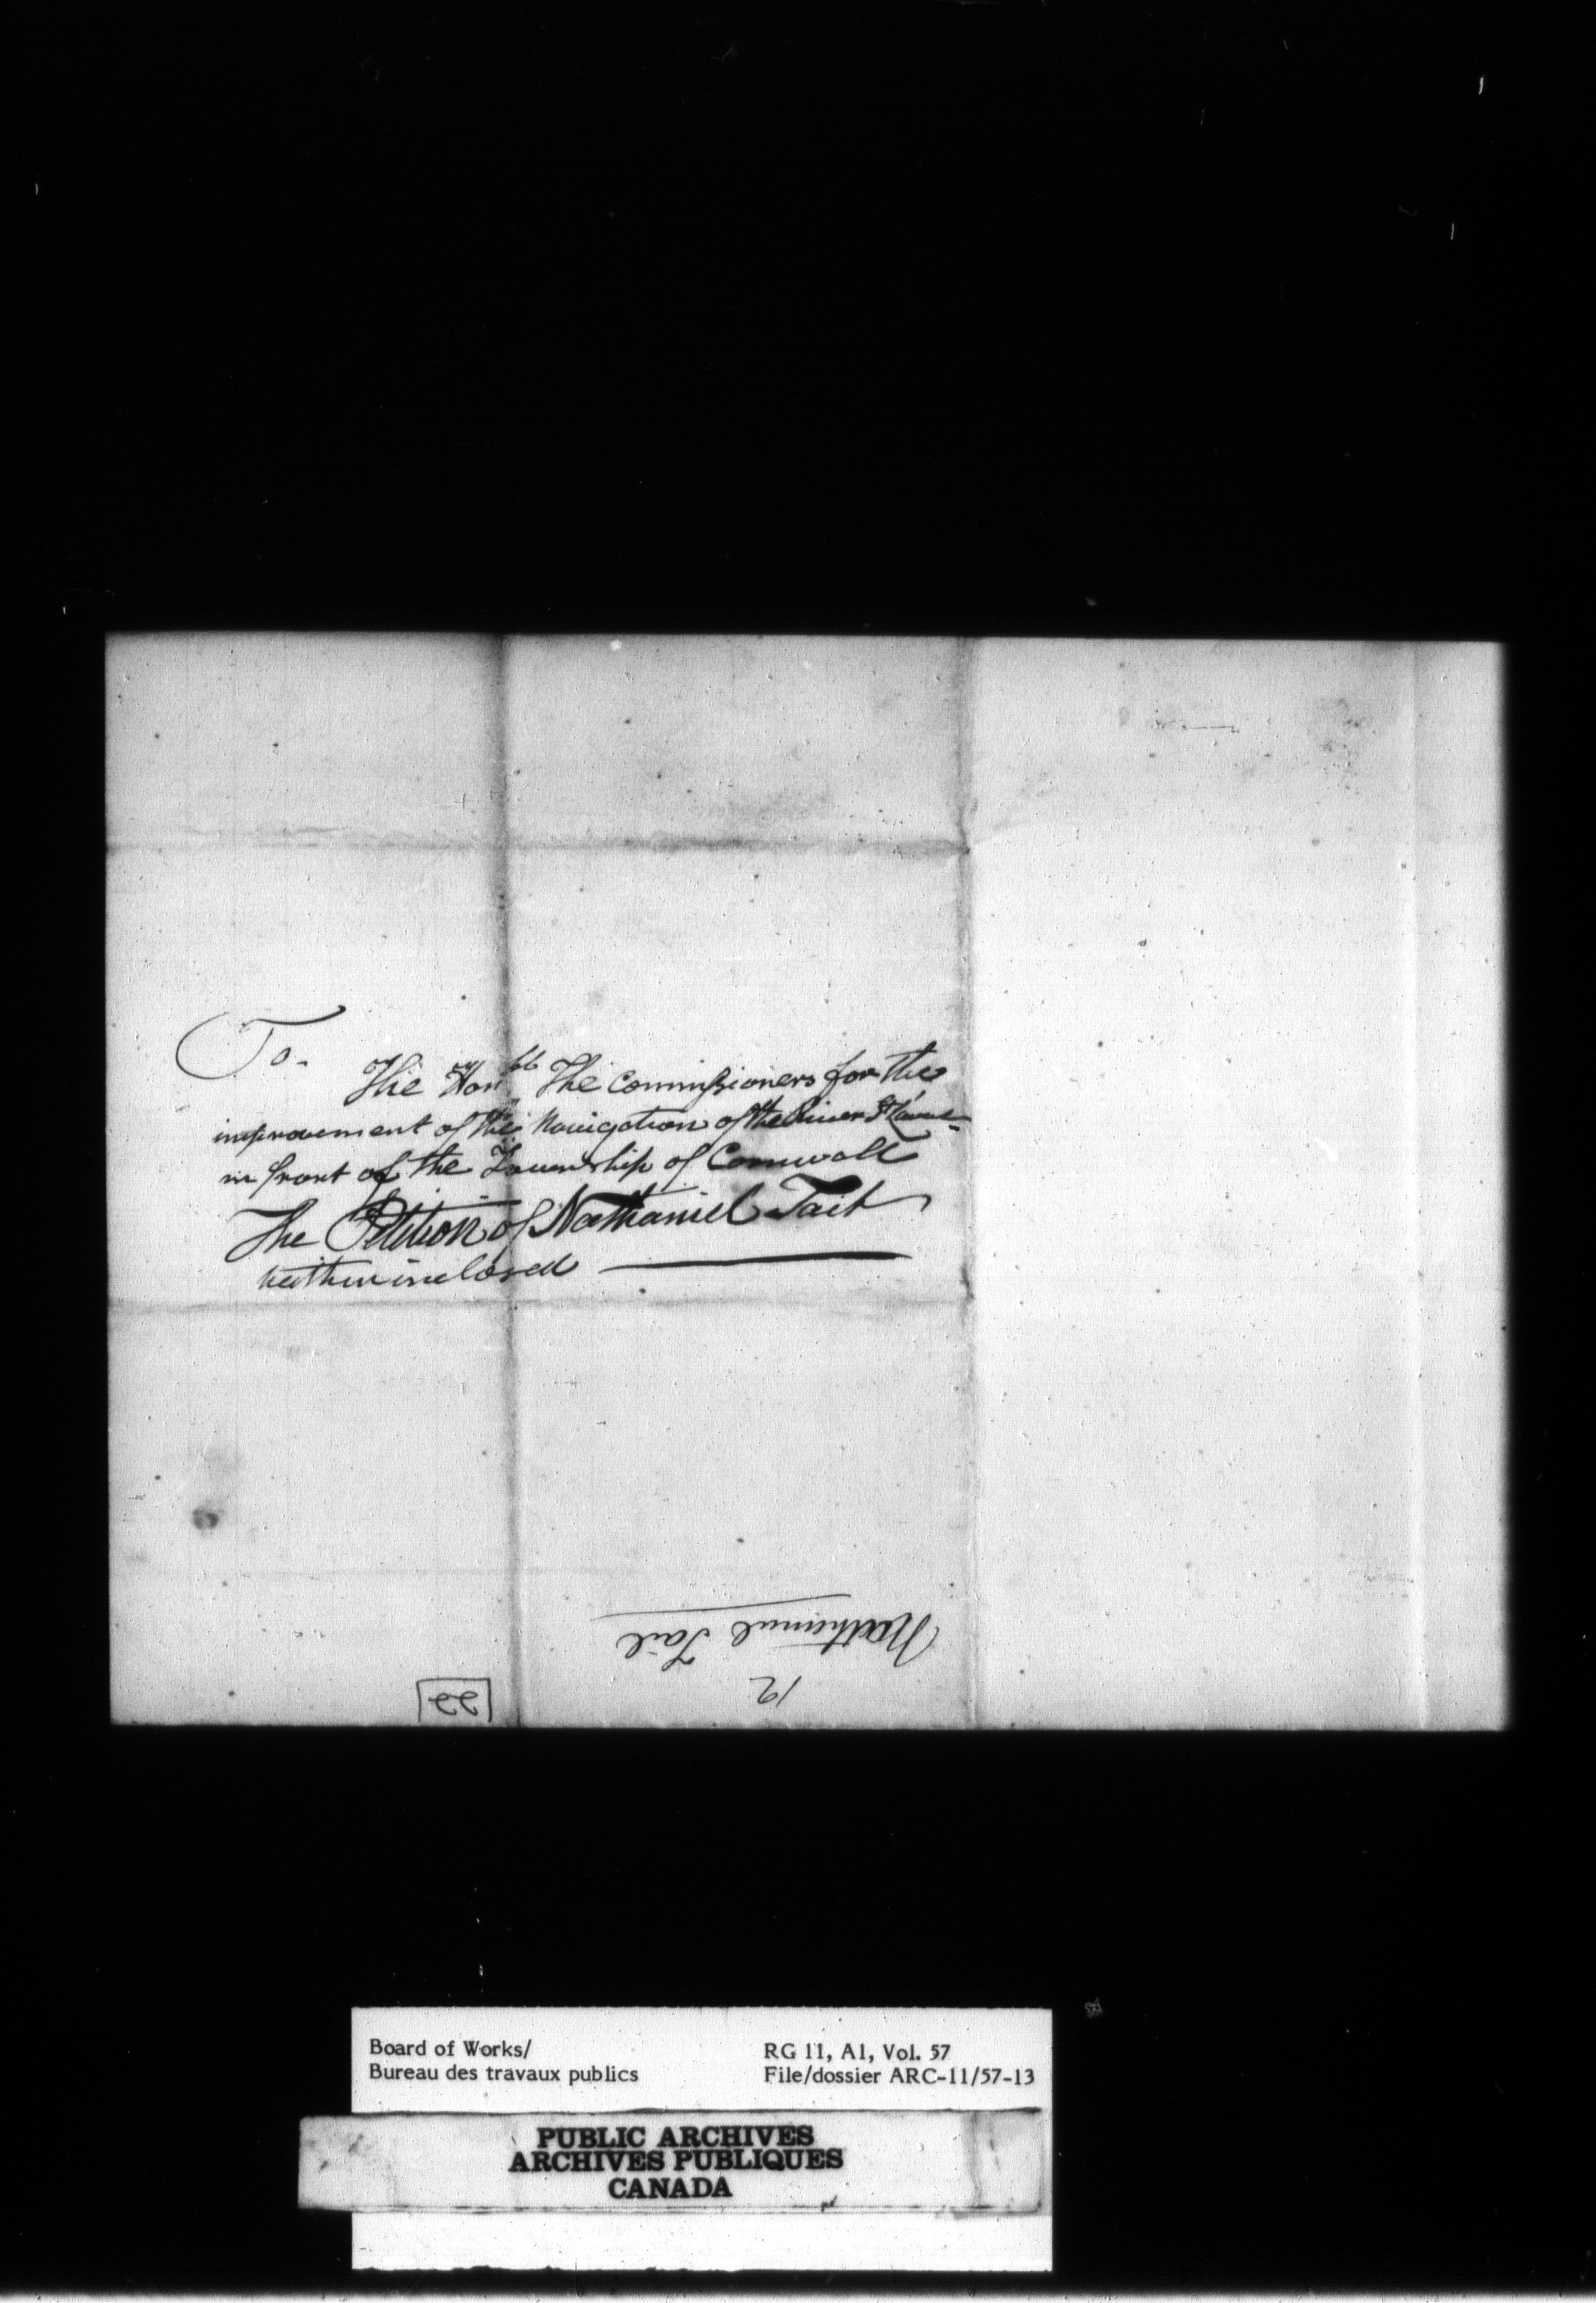 To.
The Honble The Commissioners for the
improvement of the Navigation of the River St Lawrence
in front of the Township of Cornwall
The Petition of Nathaniel Tait
within inclosed
Nathaniel Tait
12
22
Board of Works/
Bureau des travaux publics
RG 11, A1, Vol. 57
File/dossier ARC-11/57-13
PUBLIC ARCHIVES
ARCHIVES PUBLIQUES
CANADA